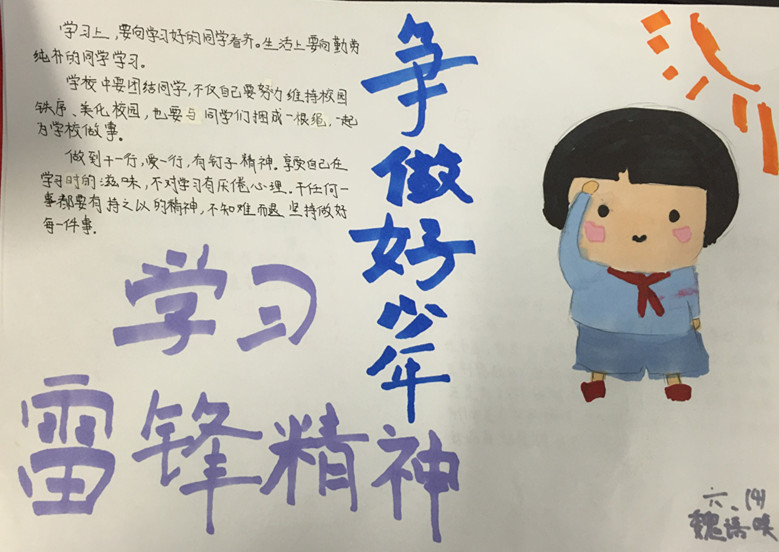 学习上，要向学习好的同学看齐。生活上要向勤劳
纯朴的同学学习。
学校中要团结同学，不仅自己要努力维持校园
秩序、美化校园，也要与同学们捆成一根绳，一起
为学校做事。
做到干一行，爱一行，有钉子精神。享受自己在
学习时的滋味，不对学习有厌倦心理。干任何一
事都要有持之以的精神，不知难而退 坚持做好
每一件事.
争做好少年
学习
雷锋精神
六、(4)
魏